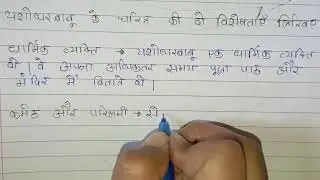 यशोधरबाबू के चरित्र की दो विशेषताएं लिखिए
धार्मिक व्यक्ति → यशोधरबाबू एक धार्मिक व्यक्ति
थे। वे अपना अधिकतर समय पूजा पाठ और
मंदिर में बिताते थे।
कर्मठ और परिश्रमी → से